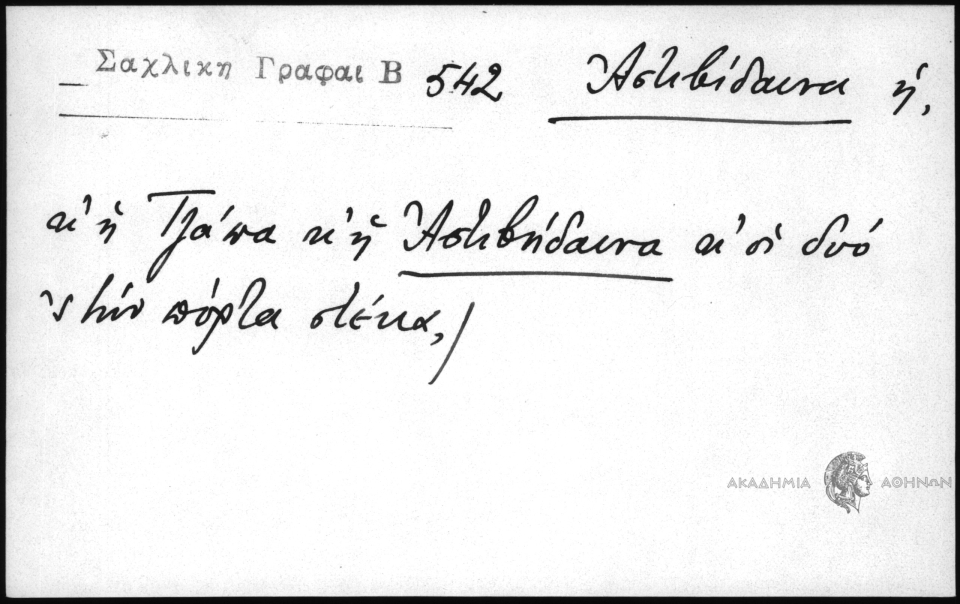 Σαχλικη Γραφαι Β 542 Ἀστιβίδαινα ἡ,
κ' ἡ Τζάπα κ' ἡ Ἀστιβήδαινα κ' οἱ δυό
'ς τὴν πόρτα στέκα,/
ΑΚΑΔΗΜΙΑ ΑΘΗΝΩΝ